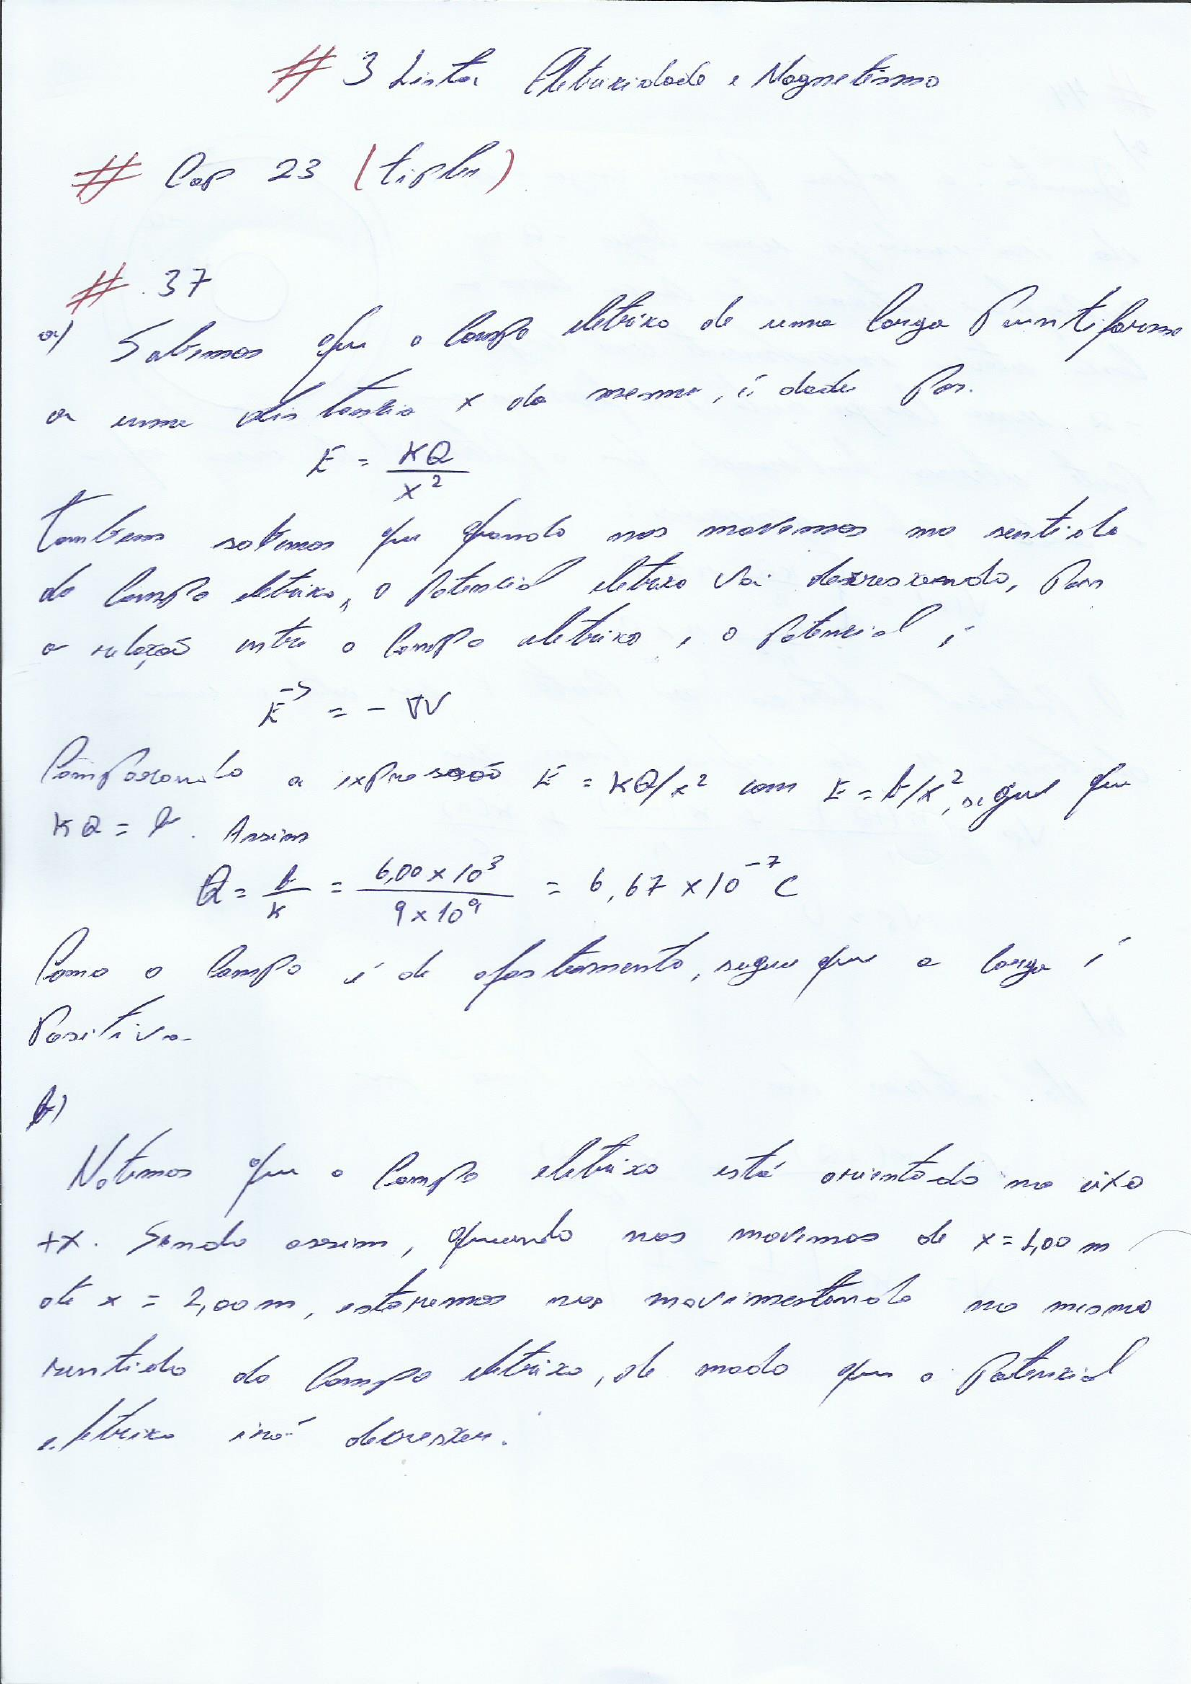 # 3 Lista Eletricidade e Magnetismo
# Cap 23 (tipler)
# .37
a) Sabemos que o campo eletrico de uma carga Puntiforme
a uma distancia x da mesma, é dado Por.
E = KQ / x²
tambem sabemos que quando nos movemos no sentido
do Campo eletrico, o Potencial eletrico vai decrescendo, Pois
a relação entre o Campo eletrico e o Potencial é
E⃗ = - ∇V
Comparando a expressão E = KQ/x² com E = b/x², segue que
KQ = b. Assim
Q = b/K = 6,00 x 10³ / 9 x 10⁹ = 6,67 x 10⁻⁷ C
Como o Campo é de afastamento, segue que a carga é
Positiva.
b)
Notemos que o Campo eletrico está orientado no eixo
+x. Sendo assim, quando nos movemos de x = 1,00 m
até x = 2,00 m, estaremos nos movimentando no mesmo
sentido do Campo eletrico, de modo que o Potencial
eletrico irá decrescer.